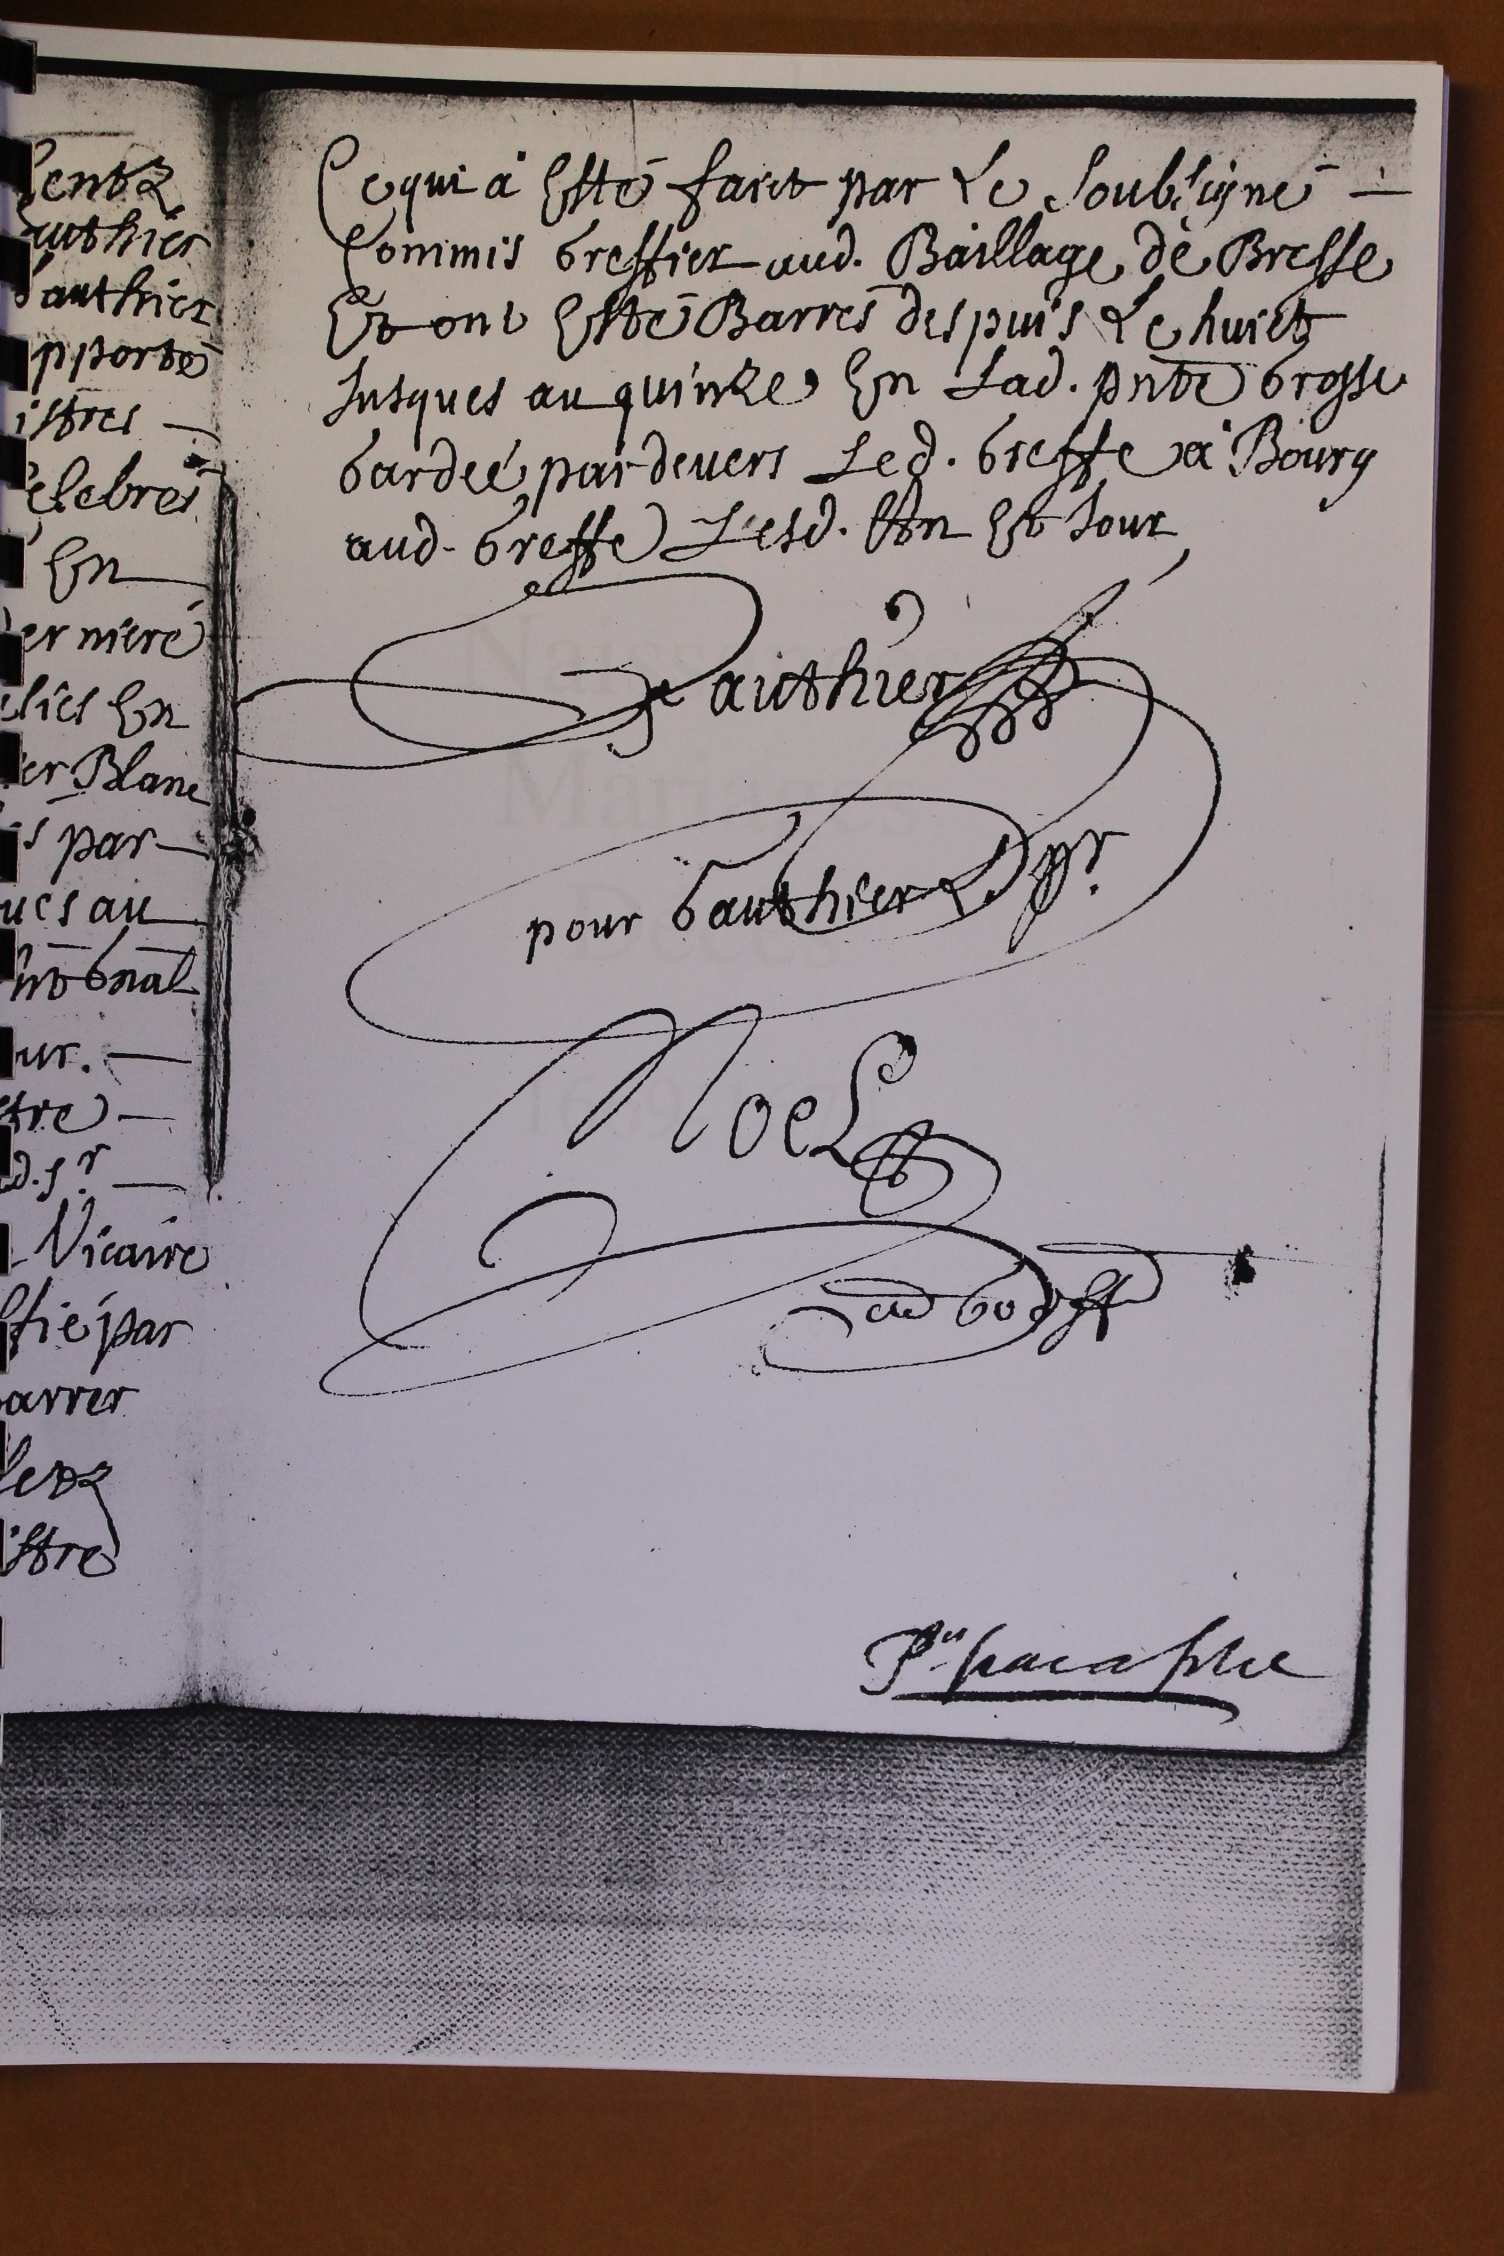 entz
authier
Gauthier
pporté
istres
celebrés
En
derniere
eliés En
ier Blanc
is par
ques au
Gnal
ur.
stre
d. Sr.
Vicaire
ffié par
barrer
istre
Ce qui à Esté faict par Le Soubsigné
Commis Greffier aud. Baillage de Bresse
Et ont Esté Barrés despuis Le huict
Jusques au quinze En Lad. pnte Grosse
Gardeé par devers Led. Greffe à Bourg
aud. Greffe Lesd. An Et Jour
Gauthier
pour Gauthier
Noel
Pr. paraphe